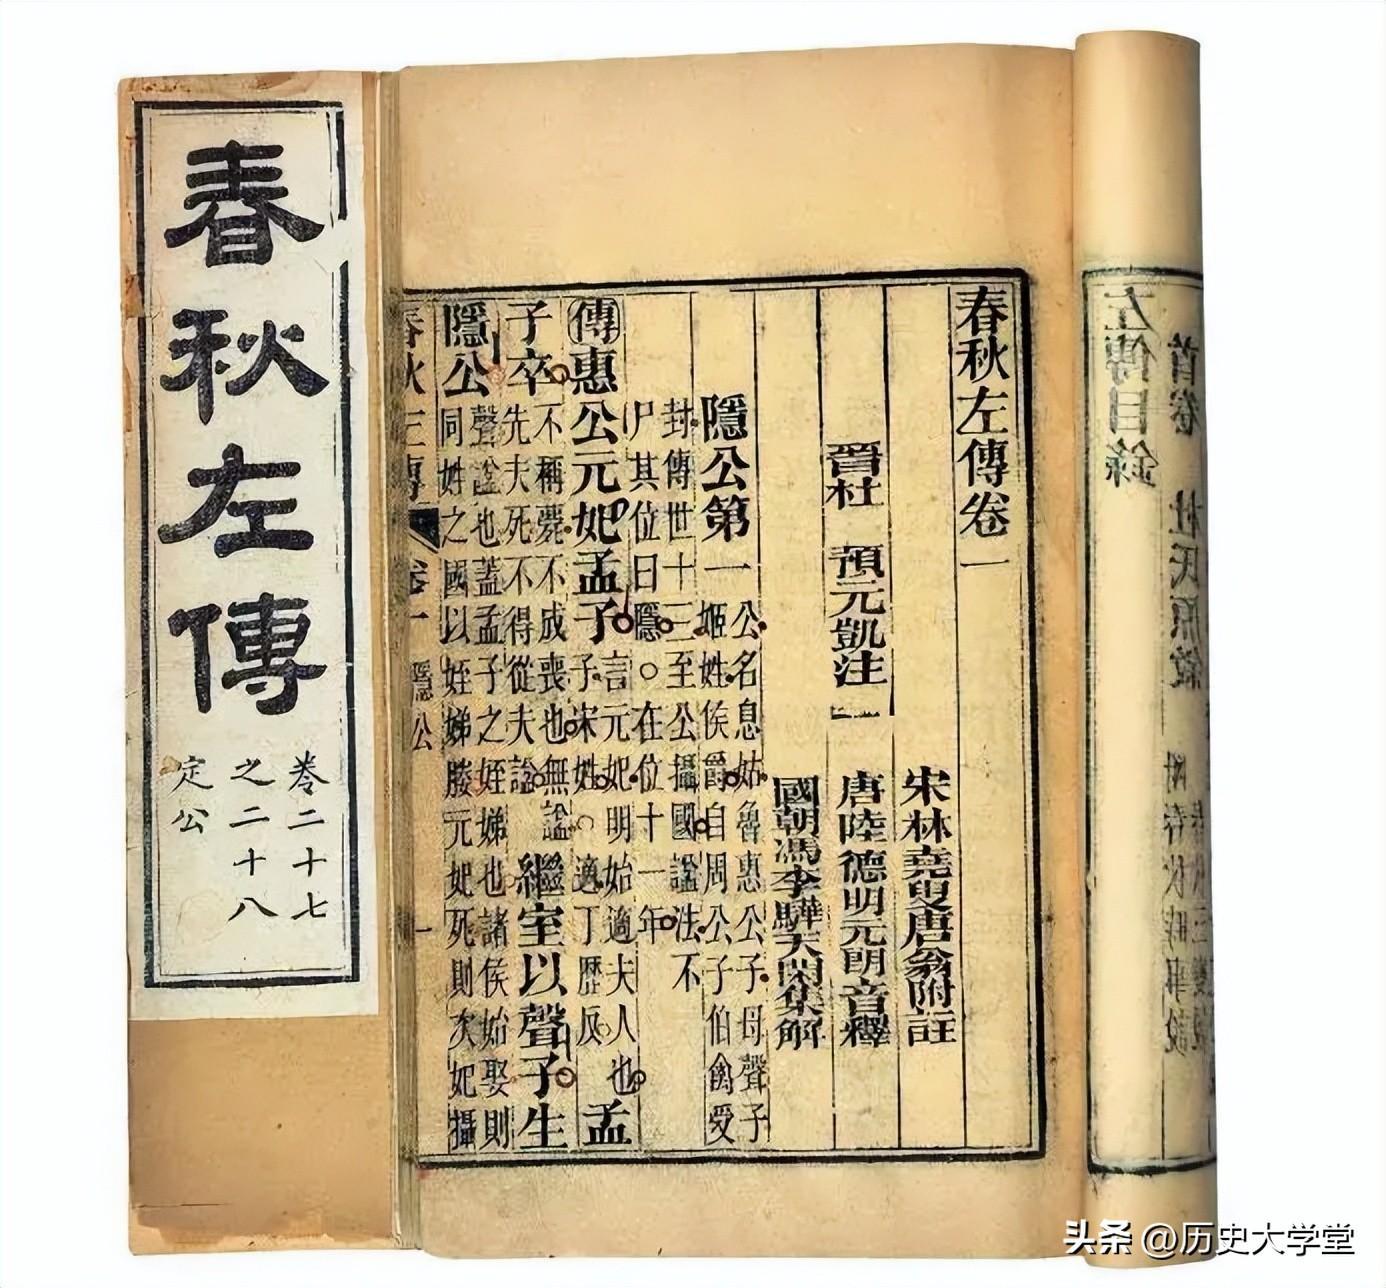 春秋左傳
卷二十七
之二十八
定公
左傳目錄
首卷 杜氏原敘
春秋左傳卷一
宋林堯叟唐翁附註
晉杜 預元凱注 唐陸德明元朗音釋
國朝馮李驊天閑集解
隱公第一 公名息姑魯惠公子母聲子
姬姓侯爵自周公子伯禽受
封傳世十三至公攝國謚法不
尸其位曰隱○在位十一年
傳惠公元妃孟子 言元妃明始適夫人也
子宋姓○適丁歷反 孟
子卒 不稱薨不成喪也無謚
先夫死不得從夫謚 繼室以聲子生
隱公 聲謚也蓋孟子之姪娣也諸侯始娶則
同姓之國以姪娣媵元妃死則次妃攝
春秋三傳 卷一 隱公 一
头条 @历史大学堂